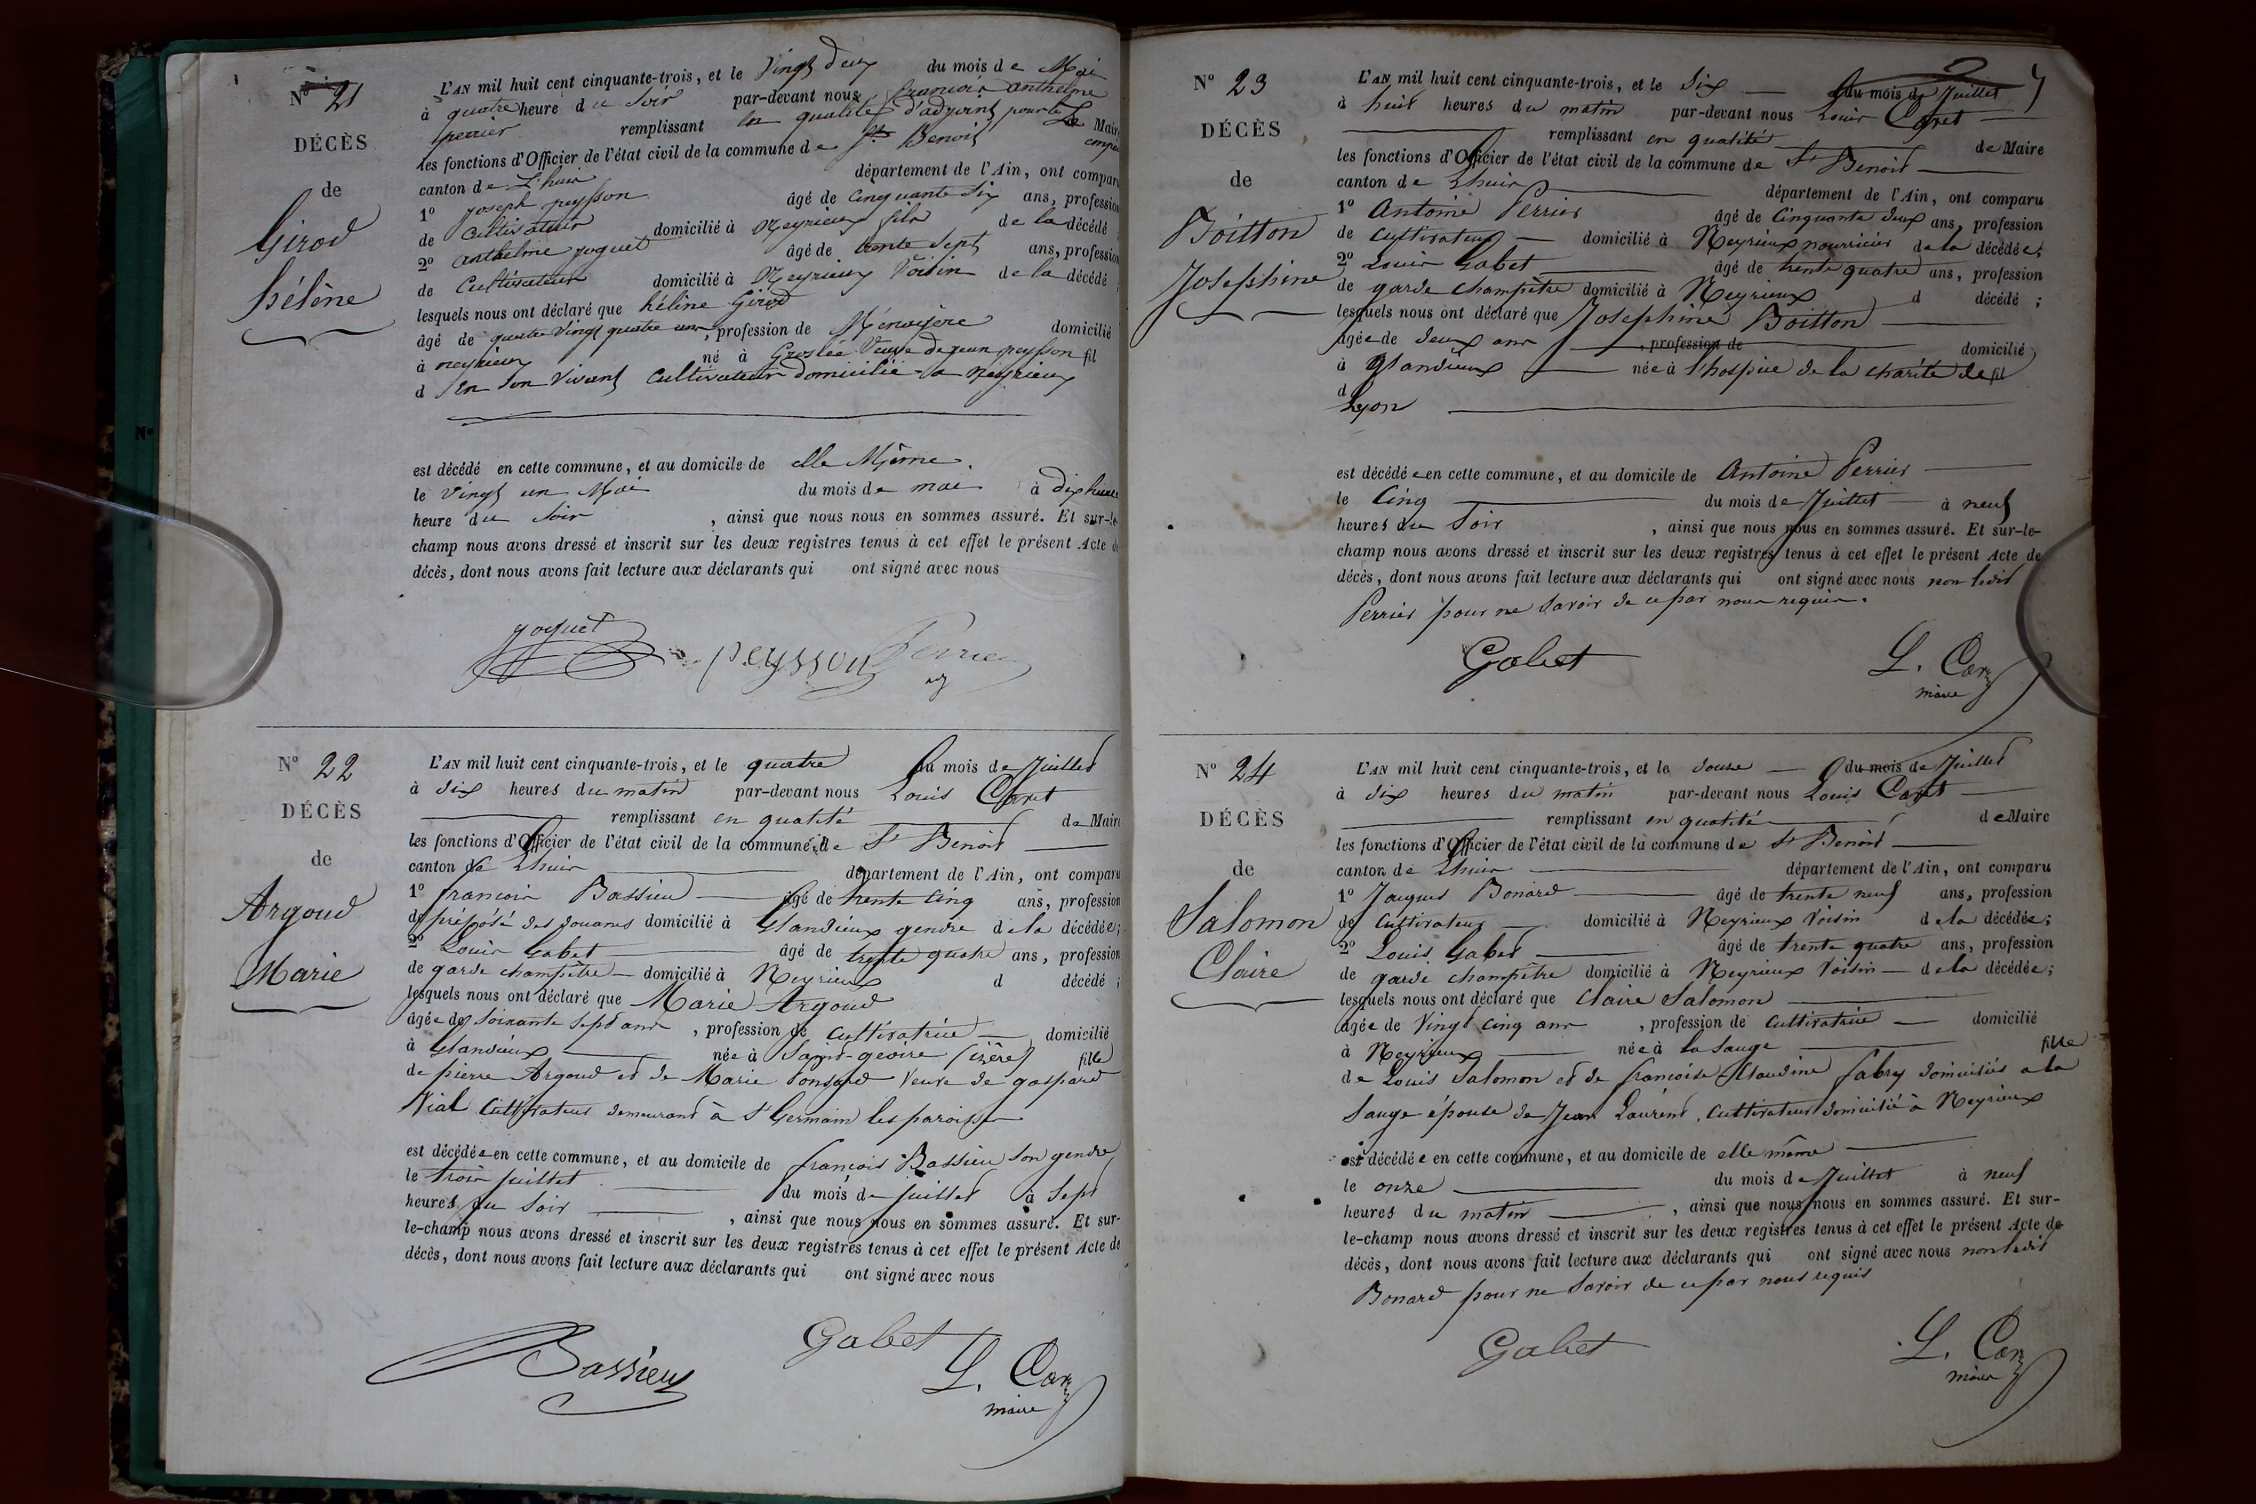 N° 21
DÉCÈS
de
Girod
hélène
L'AN mil huit cent cinquante-trois, et le Vingt deux du mois de Mai
à quatre heure du Soir par-devant nous françois anthelme
perrier remplissant en qualité d'adjoint pour le Maire
les fonctions d'Officier de l'état civil de la commune de St Benoit
canton de L'huis département de l'Ain, ont comparu
1° joseph peysson âgé de cinquante six ans, profession
de Cultivateur domicilié à Neyrieux fils de la décédé
2° anthelme yoguet âgé de trente sept ans, profession
de Cultivateur domicilié à Neyrieux Voisin de la décédé ;
lesquels nous ont déclaré que héléne Girod
âgé de quatre Vingt quatre ans, profession de domicilié
à neyrieux né à Groslée Veuve de jean peysson fil
d en son Vivant Cultivateur domicilié a neyrieux
est décédé en cette commune, et au domicile de elle Même.
le Vingt un Mai du mois de mai à dix heure
heure du Soir , ainsi que nous nous en sommes assuré. Et sur-le-
champ nous avons dressé et inscrit sur les deux registres tenus à cet effet le présent Acte de
décès, dont nous avons fait lecture aux déclarants qui ont signé avec nous
yoguet peysson Perrier
N° 22
DÉCÈS
de
Argoud
Marie
L'AN mil huit cent cinquante-trois, et le quatre du mois de Juillet
à dix heures du matin par-devant nous Louis Caret
remplissant en qualité de Maire
les fonctions d'Officier de l'état civil de la commune de St Benoit
canton de Lhuis département de l'Ain, ont comparu
1° françois Bassieu âgé de trente cinq ans, profession
de préposé des douanes domicilié à Glandieux gendre de la décédée;
2° Louis Gabet âgé de trente quatre ans, profession
de garde champêtre domicilié à Neyrieux d décédé ;
lesquels nous ont déclaré que Marie Argoud
âgée de soixante sept ans , profession de cultivatrice domicilié
à Glandieux née à Saint-geoire (isère) fille
de pierre Argoud et de Marie Ponsard Veuve de gaspard
Vial Cultivateur demeurant à St Germain les paroisses
est décédée en cette commune, et au domicile de françois Bassieu son gendre
le trois juillet du mois de juillet à Sept
heures du Soir , ainsi que nous nous en sommes assuré. Et sur-
le-champ nous avons dressé et inscrit sur les deux registres tenus à cet effet le présent Acte de
décès, dont nous avons fait lecture aux déclarants qui ont signé avec nous
Bassieu Gabet L. Car
maire
N° 23
DÉCÈS
de
Boitton
Josephine
L'AN mil huit cent cinquante-trois, et le Six du mois de Juillet
à huit heures du matin par-devant nous Louis Caret
remplissant en qualité de Maire
les fonctions d'Officier de l'état civil de la commune de St Benoit
canton de Lhuis département de l'Ain, ont comparu
1° Antoine Perrier âgé de Cinquante deux ans, profession
de Cultivateur domicilié à Neyrieux nourricier de la décédée;
2° Louis Gabet âgé de trente quatre ans, profession
de garde champêtre domicilié à Neyrieux d décédé ;
lesquels nous ont déclaré que Josephine Boitton
âgée de deux ans , profession de domicilié
à Glandieux née à l'hospice de la charité de fil
d Lyon
est décédée en cette commune, et au domicile de Antoine Perrier
le Cinq du mois de Juillet à neuf
heures du Soir , ainsi que nous nous en sommes assuré. Et sur-le-
champ nous avons dressé et inscrit sur les deux registres tenus à cet effet le présent Acte de
décès, dont nous avons fait lecture aux déclarants qui ont signé avec nous non ledit
Perrier pour ne savoir de ce par nous requis.
Gabet L. Car
maire
N° 24
DÉCÈS
de
Salomon
Claire
L'AN mil huit cent cinquante-trois, et le douze du mois de Juillet
à dix heures du matin par-devant nous Louis Caret
remplissant en qualité de Maire
les fonctions d'Officier de l'état civil de la commune de St Benoit
canton de Lhuis département de l'Ain, ont comparu
1° Jacques Bonard âgé de trente neuf ans, profession
de Cultivateur domicilié à Neyrieux Voisin de la décédée;
2° Louis Gabet âgé de trente quatre ans, profession
de garde champêtre domicilié à Neyrieux Voisin de la décédée;
lesquels nous ont déclaré que Claire Salomon
âgée de Vingt cinq ans , profession de Cultivatrice domicilié
à Neyrieux née à la Sauge fille
de Louis Salomon et de françoise Claudine fabry domiciliés a la
Sauge épouse de Jean Laurent, Cultivateur domicilié à Neyrieux
est décédée en cette commune, et au domicile de elle même
le onze du mois de Juillet à neuf
heures du matin , ainsi que nous nous en sommes assuré. Et sur-
le-champ nous avons dressé et inscrit sur les deux registres tenus à cet effet le présent Acte de
décès, dont nous avons fait lecture aux déclarants qui ont signé avec nous non ledit
Bonard pour ne savoir de ce par nous requis
Gabet L. Car
maire